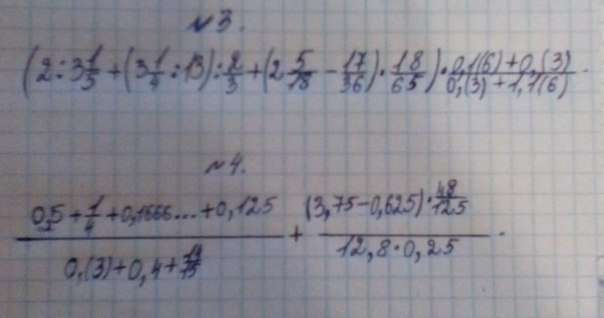 №3.
(2:3 1/5+(3 1/4:13):2/3+(2 5/18-17/36)·18/65)·(0,1(6)+0,(3))/(0,(3)+1,1(6))
№4.
(0,5+1/4+0,1666...+0,125)/(0,(3)+0,4+14/15)+((3,75-0,625)·48/125)/(12,8·0,25).